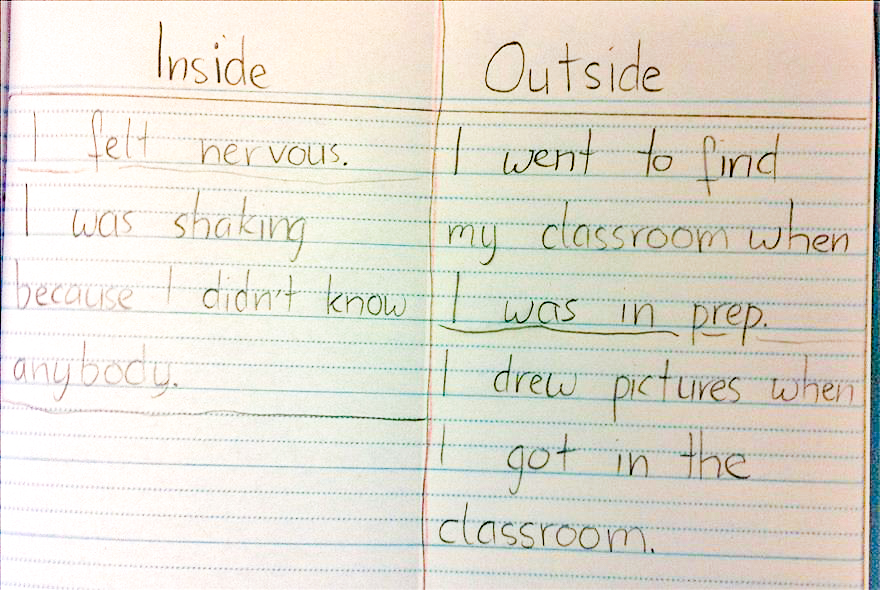 Inside
I felt nervous.
I was shaking
because I didn't know
anybody.
Outside
I went to find
my classroom when
I was in prep.
I drew pictures when
I got in the
classroom.